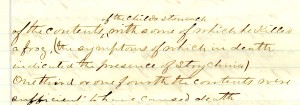 of the child's stomach
of the contents, with some of which he killed
a frog, (the symptoms of which in death
indicated the presence of Strychnine)
One third or one fourth the contents were
sufficient to have caused death